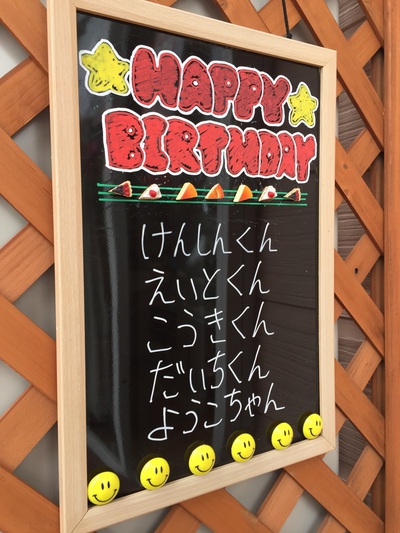 HAPPY
BIRTHDAY
けんしんくん
えいとくん
こうきくん
だいちくん
ようこちゃん